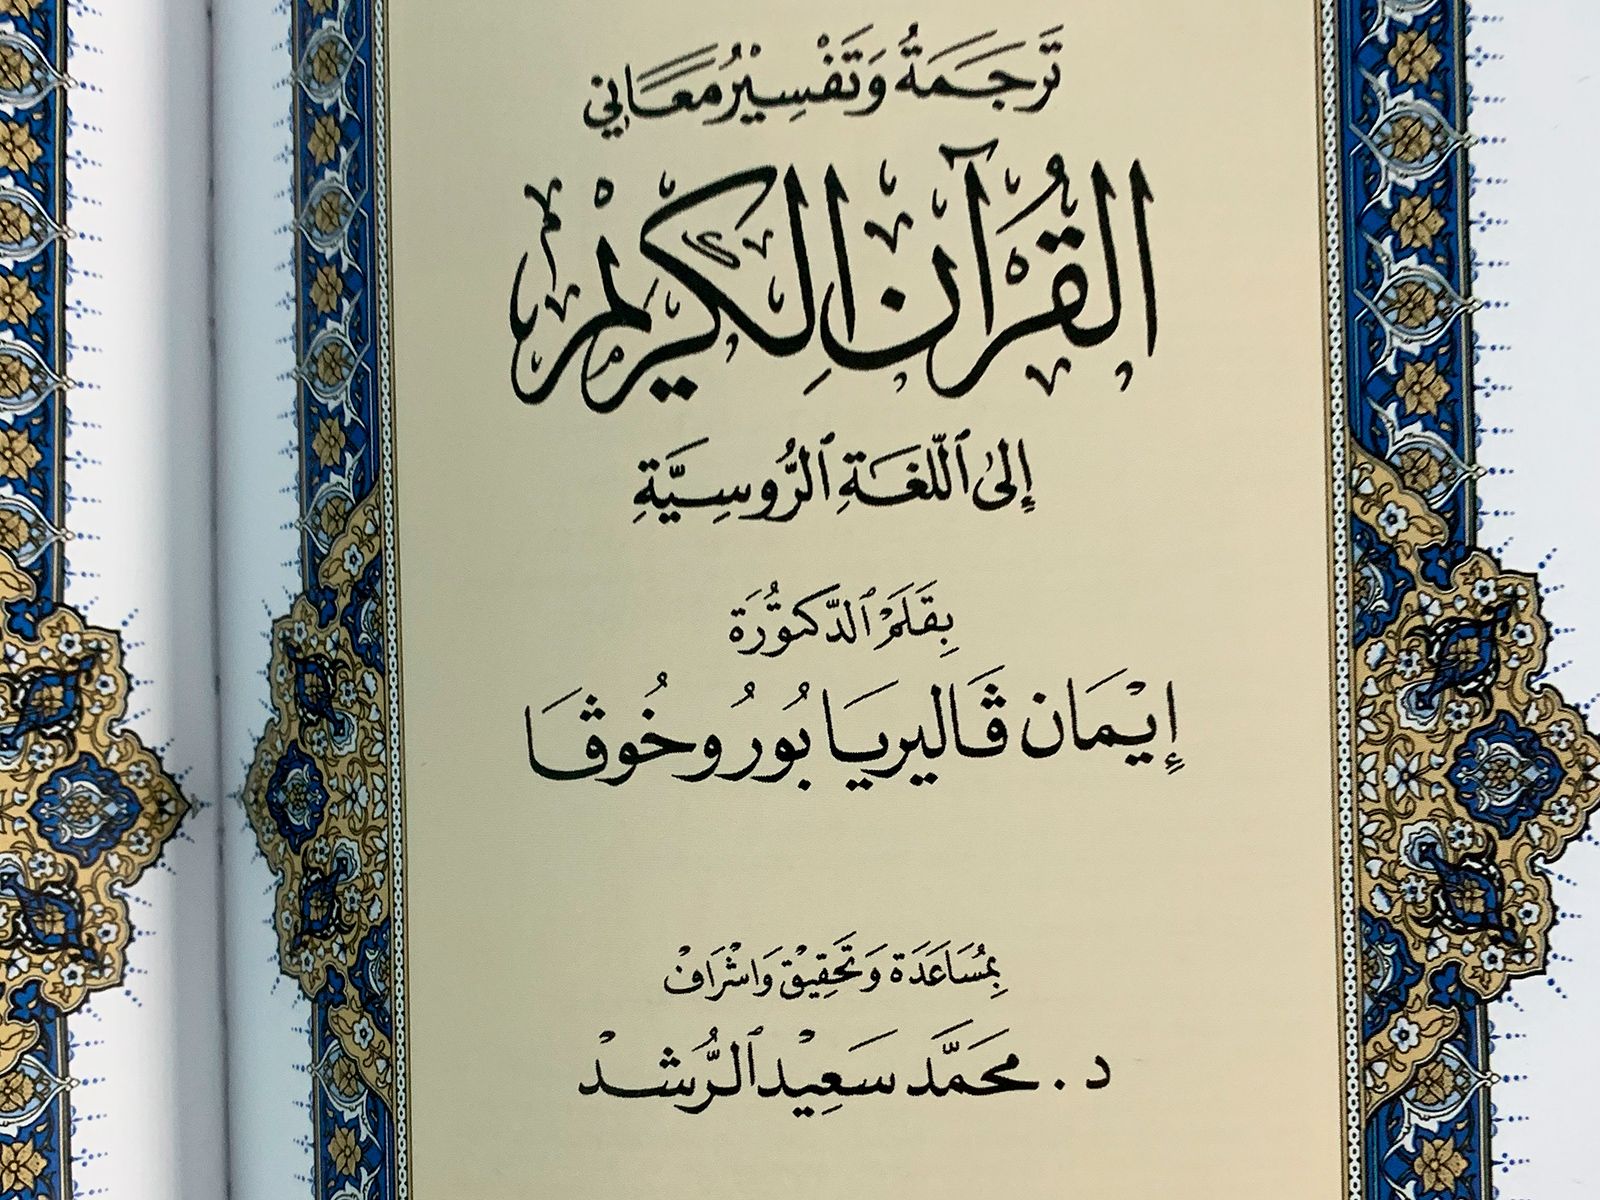 تَرْجَمَةُ وَتَفْسِيْرُ مَعَانِي
القُرْآنِ الكَرِيْمِ
إِلىٰ ٱللّغَةِ ٱلرُّوسِيَّةِ
بِقَلَمْ ٱلدّكتُورَة
إِيْمَان ڤَاليريَا بُورُوخُوڤَا
بِمُسَاعَدَة وَتَحْقِيْق وَاشْرَافْ
د . محَمَّد سَعِيْد ٱلرُّشدْ